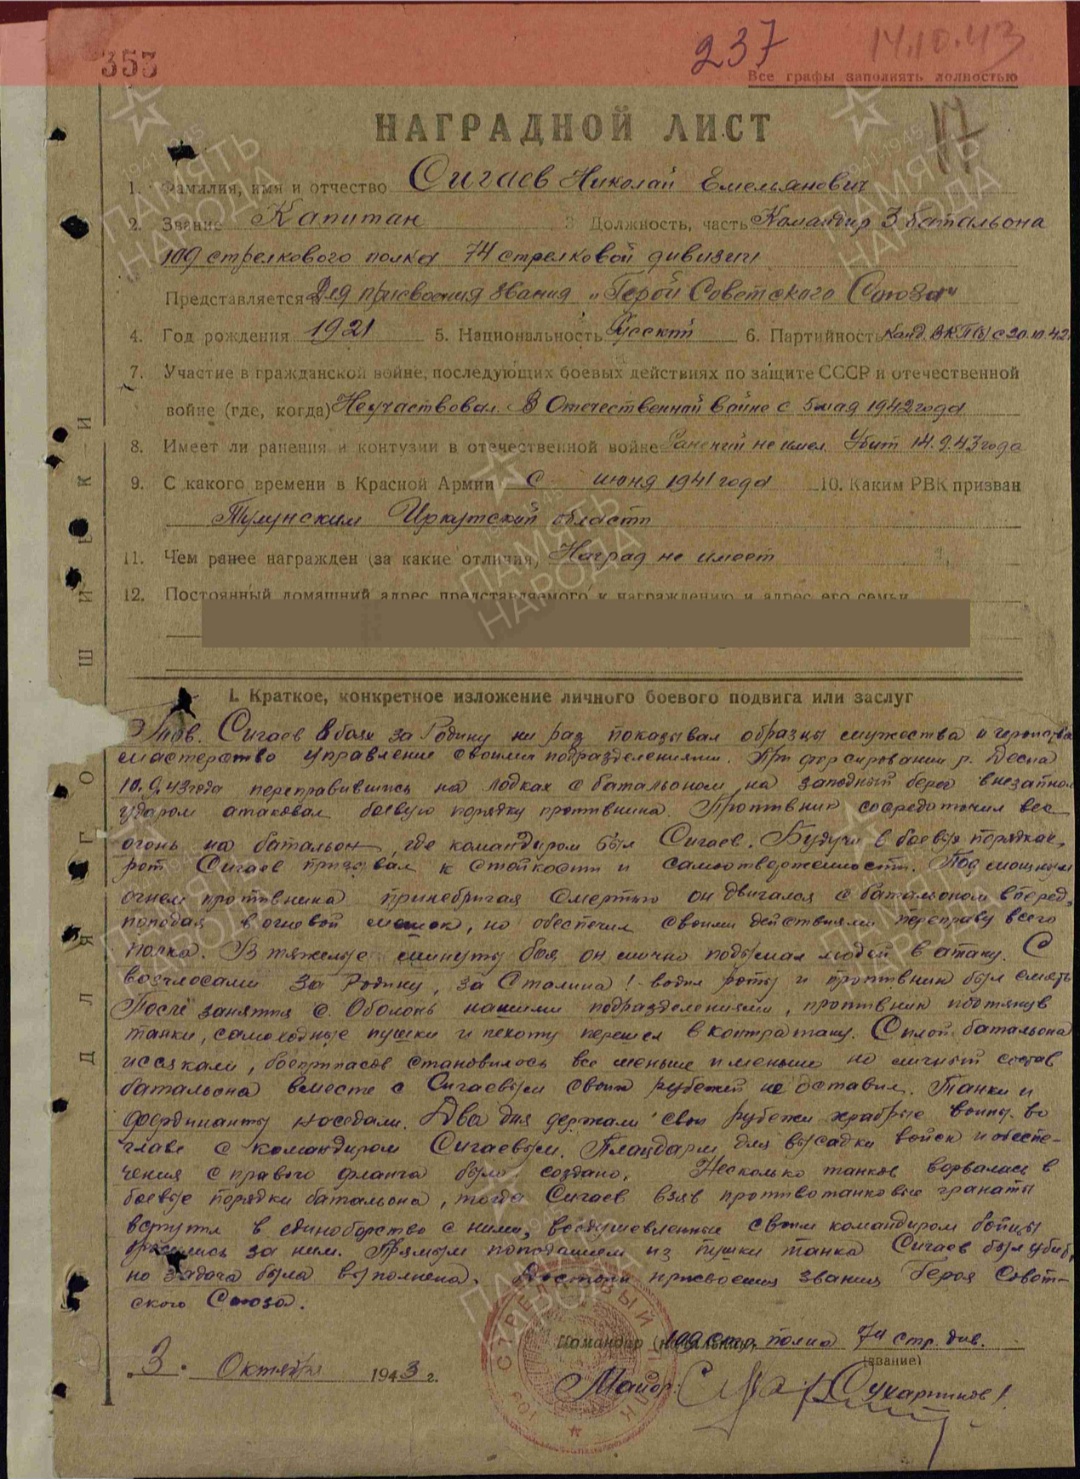 353
237
14.10.43
Все графы заполнять полностью
17
НАГРАДНОЙ ЛИСТ
1. Фамилия, имя и отчество Сигаев Николай Емельянович
2. Звание Капитан 3 Должность, часть Командир 3 батальона
109 стрелкового полка 74 стрелковой дивизии
Представляется Для присвоения звания „Герой Советского Союза"
4. Год рождения 1921 5. Национальность Русский 6. Партийность Канд. ВКП(б) с 30.10.42
7. Участие в гражданской войне, последующих боевых действиях по защите СССР и отечественной
войне (где, когда) Неучаствовал. В Отечественной войне с 5 мая 1942 года
8. Имеет ли ранения и контузии в отечественной войне Ранений не имел. Убит 14.9.43 года
9. С какого времени в Красной Армии С июня 1941 года 10. Каким РВК призван
Тулунским Иркутской области
11. Чем ранее награжден (за какие отличия) Наград не имеет
12. Постоянный домашний адрес представляемого к награждению и адрес его семьи
ДЛЯ ПОДШИВКИ
I. Краткое, конкретное изложение личного боевого подвига или заслуг
Тов. Сигаев в боях за Родину ни раз показывал образцы мужества и геройства
мастерство управление своими подразделениями. При форсировании р. Десна
10.9.43 года переправившись на лодках с батальоном на западный берег внезапном
ударом атаковал боевую порядку противника. Противник сосредоточил весь
огонь на батальон, где командиром был Сигаев. Будучи в боевых порядках
рот Сигаев призывал к стойкости и самоотверженности. Под мощным
огнем противника принебрегая смертью он двигался с батальоном вперед,
попадая в огневой мешок, но обеспечил своими действиями переправу всего
полка. В тяжелые минуты боя он лично подымал людей в атаку. С
возгласами За Родину, за Сталина! водил роты и противник был смят
После занятия с. Оболонь нашими подразделениями, противник подтянув
танки, самоходные пушки и пехоту перешел в контратаку. Силы батальона
иссякали, боеприпасов становилось все меньше и меньше но личный состав
батальона вместе с Сигаевым своих рубежей не оставил. Танки и
фердинанты наседали. Два дня держали свои рубежи храбрые воины во
главе с командиром Сигаевым. Плацдарм для высадки войск и обеспе-
чения с правого фланга был создано. Несколько танков ворвались в
боевые порядки батальона, тогда Сигаев взяв противотанковые гранаты
вступил в единоборство с ними, воодушевленные своим командиром бойцы
бросились за ним. Прямым попаданием из пушки танка Сигаев был убит,
но задача была выполнена. Достоин присвоения звания Героя Совет-
ского Союза.
Командир 109 стр. полка 74 стр. див.
(звание)
3. Октября 1943 г.
Майор Сухарников
СТРЕЛКОВЫЙ ПОЛК 109
ПАМЯТЬ НАРОДА
1941 1945